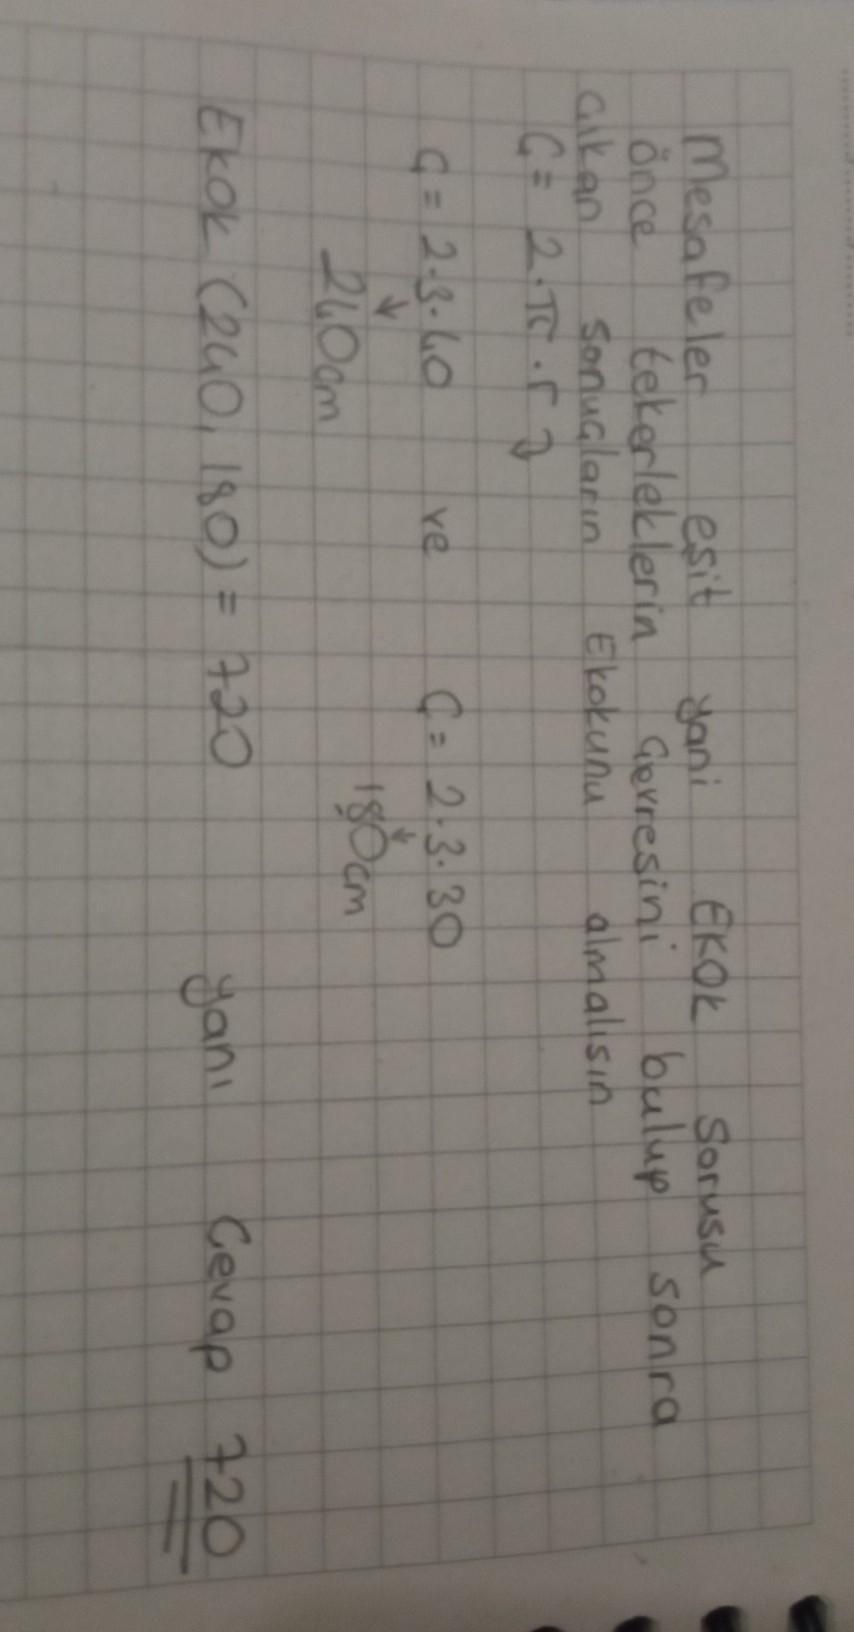 Mesafeler eşit yani EKOK sorusu
önce tekerleklerin çevresini bulup sonra
çıkan sonuçların Ekokunu almalısın
Ç = 2.π.r
Ç = 2.3.40 ve Ç = 2.3.30
240cm 180cm
Ekok (240, 180) = 720 yani Cevap 720